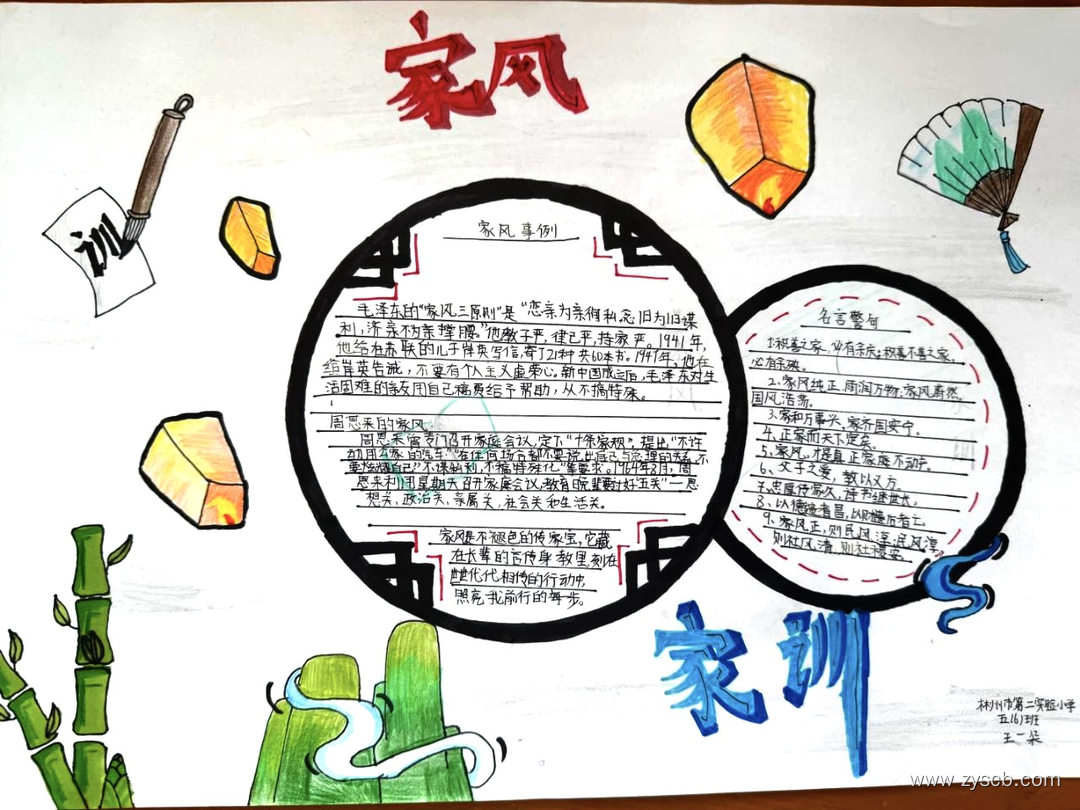 家风
训
家风事例
毛泽东的"家风三原则"是"恋亲为亲徇私,念旧为旧谋
利,济亲不为亲撑腰。"他教子严,律己严,持家严。1941年,
他给在苏联的儿子岸英写信,寄了21种共60本书。1947年,他在
给岸英告诫,不要有个人主义虚荣心。新中国成立后,毛泽东对生
活困难的亲友用自己稿费给予帮助,从不搞特殊。
周恩来的家风
周恩来曾专门召开家庭会议,定下"十条家规",提出"不许
动用公家的汽车""在任何场合都不要说出自己与总理的关系,不
要炫耀自己""不谋私利,不搞特殊化"等要求。1964年8月,周
恩来利用星期天召开家庭会议,教育晚辈要过好"五关"—思
想关、政治关、亲属关、社会关和生活关。
家风是不褪色的传家宝,它藏
在长辈的言传身教里,刻在
世世代代相传的行动中,
照亮我前行的每步。
名言警句
1.积善之家,必有余庆;积善不善之家,
必有余殃。
2、家风纯正,雨润万物;家风肃然,
国风浩荡。
3、家和万事兴、家齐国安宁。
4、正家而天下定矣。
5、家风,才是真正家庭不动产。
6、父子之爱,教以义方。
7、忠厚传家久,诗书继世长。
8、以德遗后者昌,以财遗后者亡。
9、家风正,则民风淳;民风淳,
则社风清,则社稷安
家训
彬州市第二实验小学
五(6)班
王一朵
www.zyscb.com